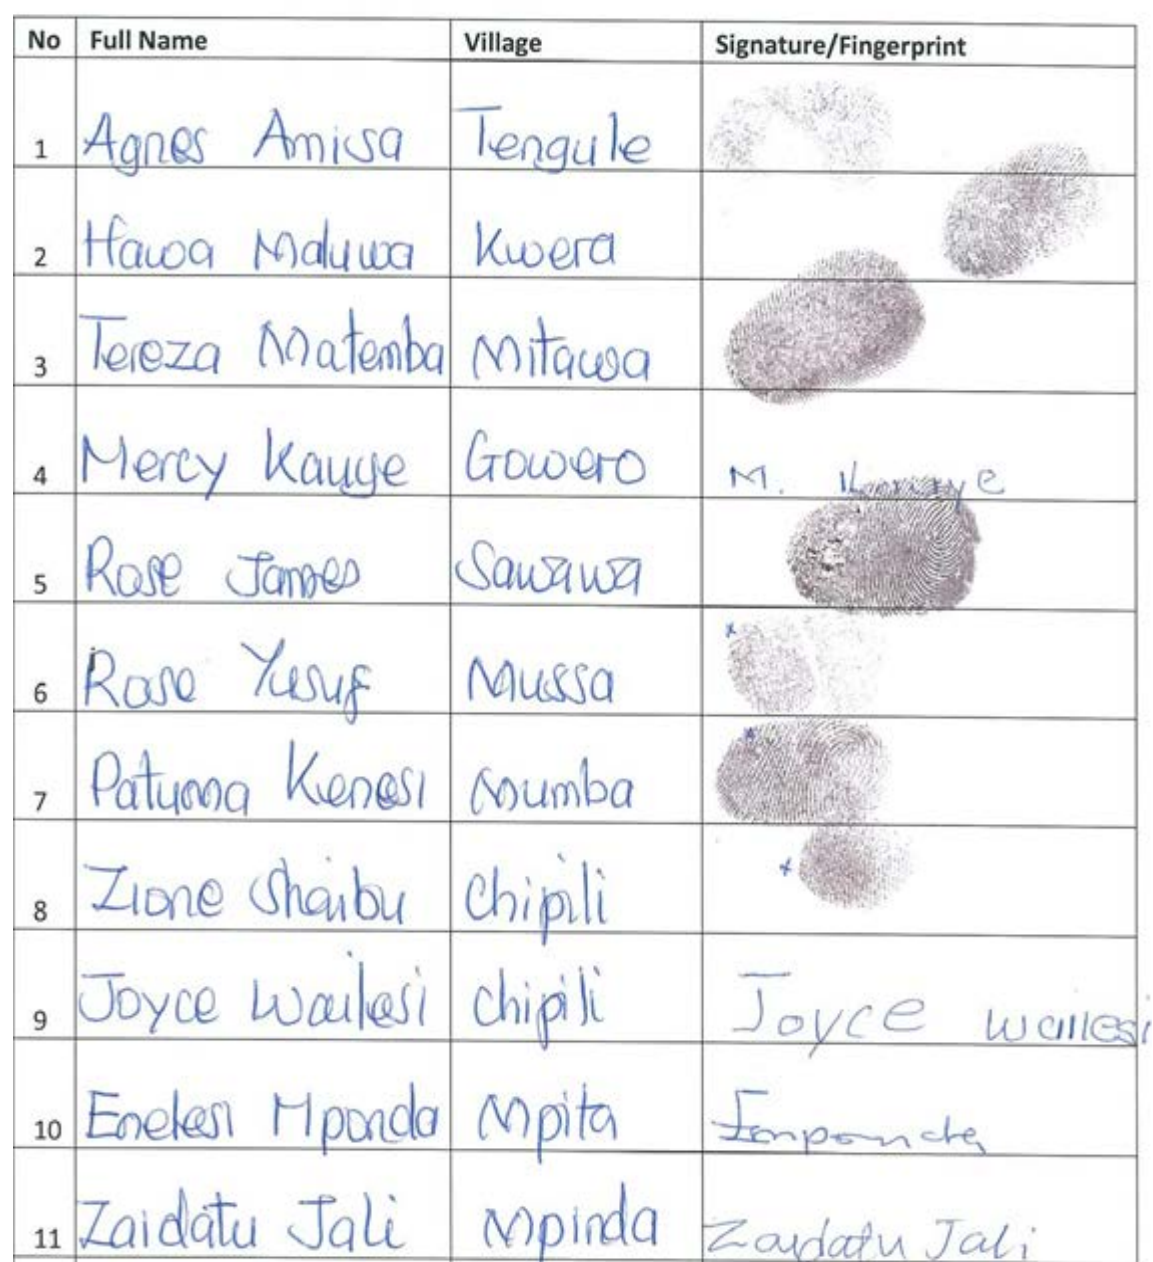 No Full Name Village Signature/Fingerprint
1 Agnes Amisa Tengule
2 Hawa Maluwa Kwera
3 Tereza Matemba Mitawa
4 Mercy Kauye Gowero M. Kauye
5 Rose James Sawawa
6 Rose Yusuf Mussa x
7 Patuma Kenesi Mumba x
8 Zione Shaibu Chipili x
9 Joyce Wailesi Chipili Joyce wailesi
10 Enelesi Mponda Mpita Emponda
11 Zaidatu Jali Mpinda Zaidatu Jali